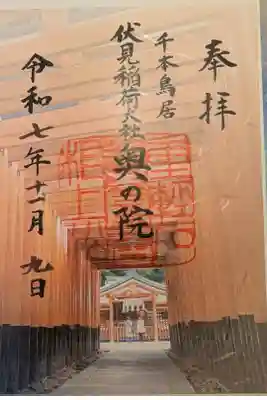 奉拝
千本鳥居
伏見稲荷大社
奥の院
令和七年十一月九日